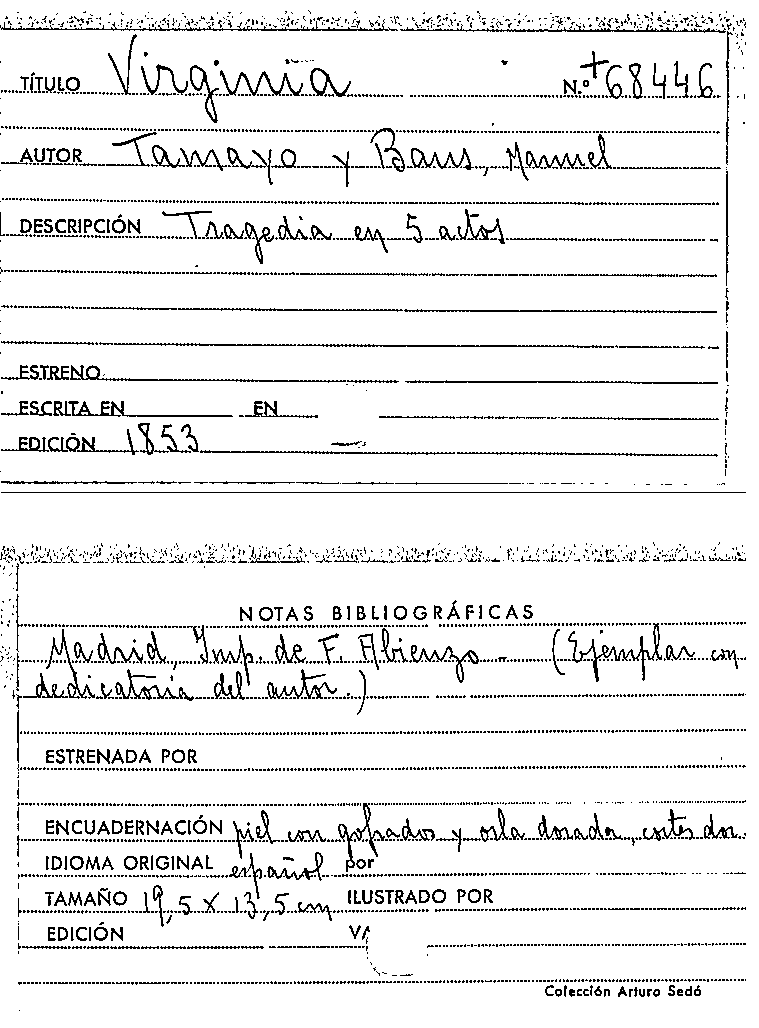 TÍTULO Virginia N.º +68446
AUTOR Tamayo y Baus, Manuel
DESCRIPCIÓN Tragedia en 5 actos
ESTRENO
ESCRITA EN EN
EDICIÓN 1853 —
NOTAS BIBLIOGRÁFICAS
Madrid, Imp. de F. Abienzo - (Ejemplar con
dedicatoria del autor.)
ESTRENADA POR
ENCUADERNACIÓN piel con gofrados y orla dorada, cortes dor.
IDIOMA ORIGINAL español por
TAMAÑO 19,5 X 13,5 cm ILUSTRADO POR
EDICIÓN
Colección Arturo Sedó